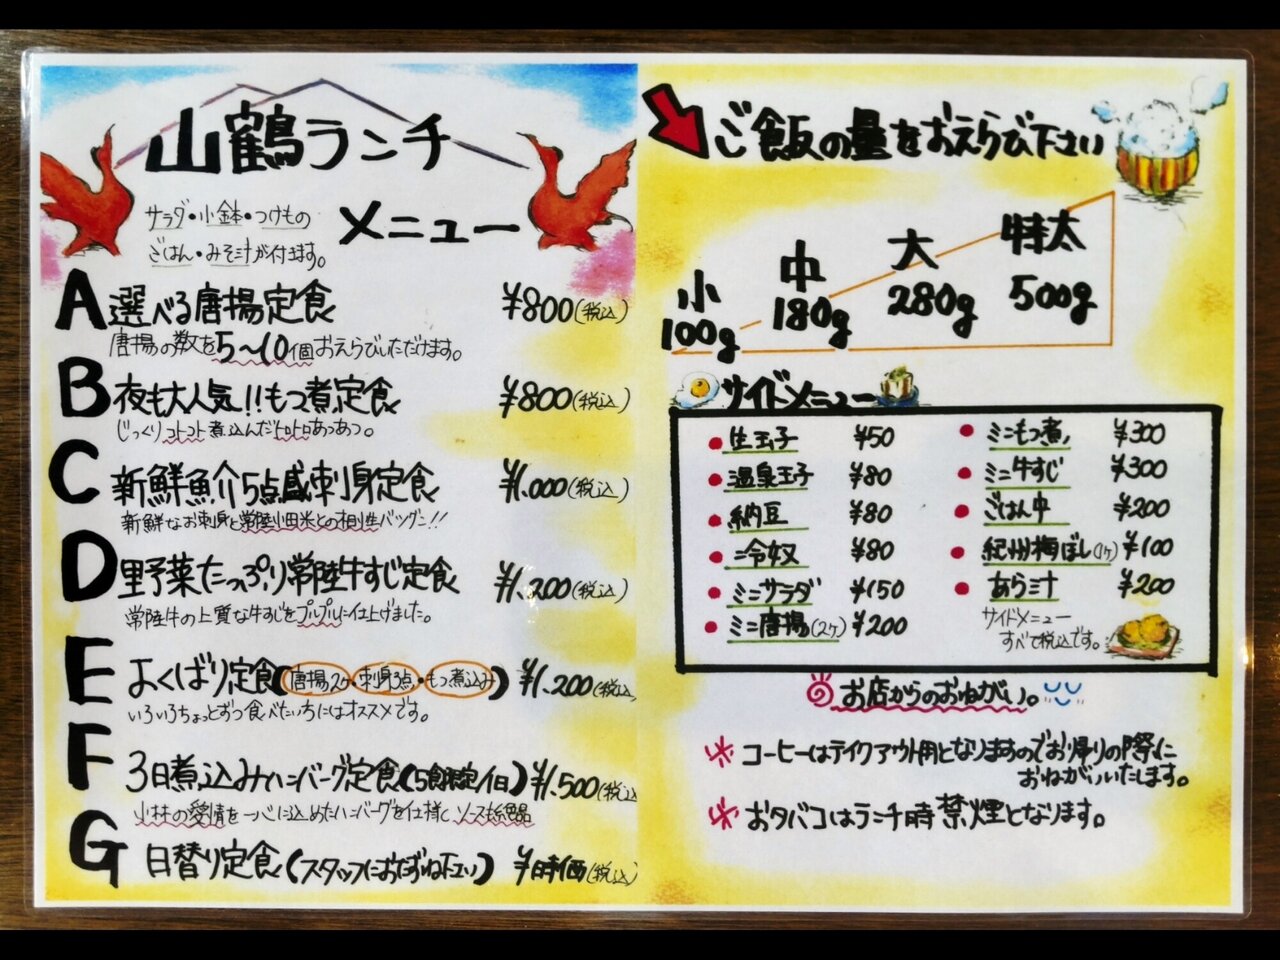 山鶴ランチ
メニュー
サラダ・小鉢・つけもの
ごはん・みそ汁が付きます。
A 選べる唐揚定食 ¥800(税込)
唐揚の数を5〜10個おえらびいただけます。
B 夜も大人気!!もつ煮定食 ¥800(税込)
じっくりコトコト煮込んだトロトロあつあつ。
C 新鮮魚介5点盛刺身定食 ¥1.000(税込)
新鮮なお刺身と常陸小田米との相性バツグン!!
D 里野菜たっぷり常陸牛すじ定食 ¥1.200(税込)
常陸牛の上質な牛すじをプルプルに仕上げました。
E よくばり定食(唐揚2ヶ・刺身3点・もつ煮込み) ¥1.200(税込)
いろいろちょっとずつ食べたい方にはオススメです。
F 3日煮込みハンバーグ定食(5食限定/日) ¥1.500(税込
小林の愛情を一心に込めたハンバーグを仕様 ソースも絶品
G 日替り定食(スタッフにおたずね下さい) ¥時価(税込)
ご飯の量をおえらび下さい
小 中 大 特太
100g 180g 280g 500g
サイドメニュー
生玉子 ¥50
温泉玉子 ¥80
納豆 ¥80
冷奴 ¥80
ミニサラダ ¥150
ミニ唐揚(2ヶ) ¥200
ミニもつ煮 ¥300
ミニ牛すじ ¥300
ごはん中 ¥200
紀州梅ぼし(1ヶ) ¥100
あら汁 ¥200
サイドメニュー
すべて税込です。
お店からのおねがい。
※コーヒーはテイクアウト用となりますのでお帰りの際に
おねがいいたします。
※おタバコはランチ時禁煙となります。